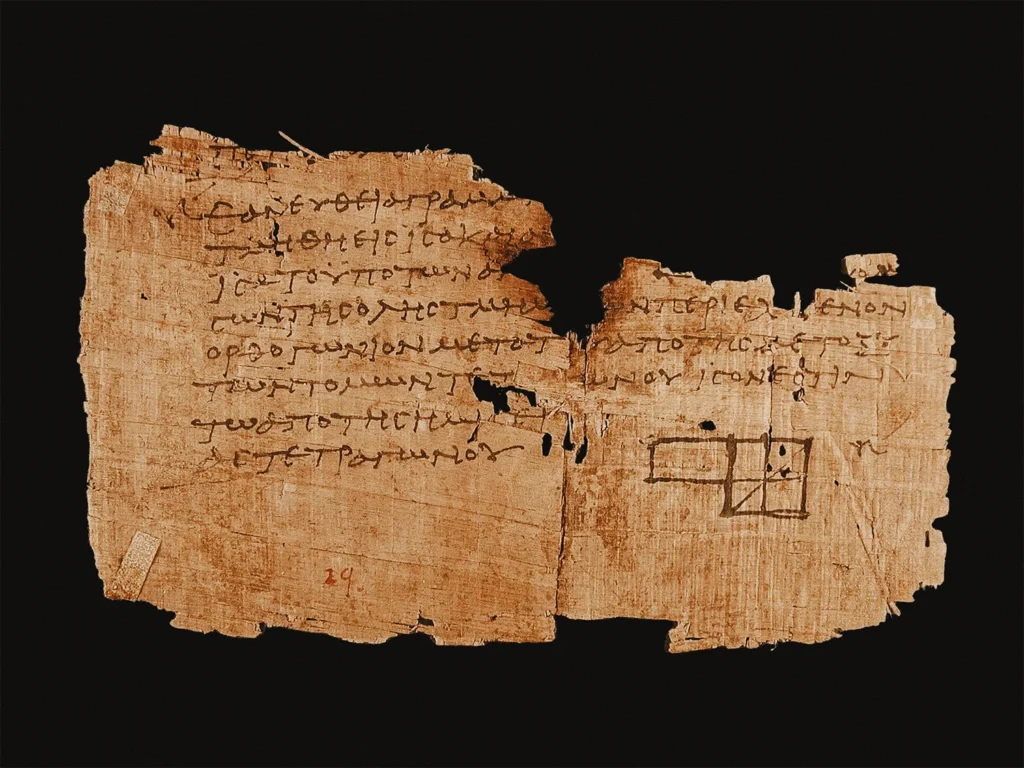 ΕΑΝ ΕΥΘΕΙΑ ΓΡΑΜΜ
ΤΜΗΘΗ ΕΙϹ ΙϹΑ Κ
ΙϹΑ ΤΟ ΥΠΟ ΤΩΝ ΑΝ
ΙϹΩΝ ΤΗϹ ΟΛΗϹ ΤΜΗΜ ΩΝ ΠΕΡΙΕΧΟΜΕΝΟΝ
ΟΡΘΟΓΩΝΙΟΝ ΜΕΤΑ ΤΟΥ ΑΠΟ ΤΗϹ ΜΕΤΟΞΥ
ΤΩΝ ΤΟΜΩΝ ΤΕΤ ΩΝΟΥ ΙϹΟΝ ΕϹΤΙΝ
ΤΩ ΑΠΟ ΤΗϹ ΗΜΙ
ΑϹ ΤΕΤΡΑΓΩΝΟΥ
29.